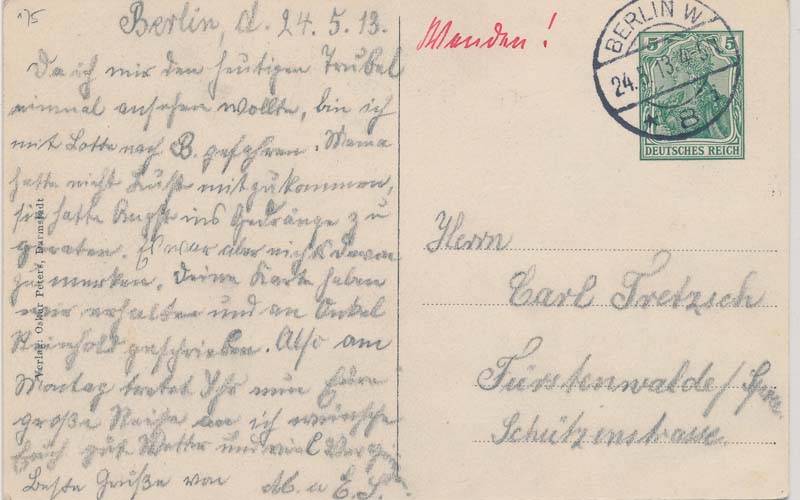 175
Berlin, d. 24. 5. 13.
Da ich mir den heutigen Trubel
einmal ansehen wollte, bin ich
mit Lotte nach B. gefahren. Mama
hatte nicht Lust mitzukommen,
sie hatte Angst ins Gedränge zu
geraten. Es war aber nichts davon
zu merken. Deine Karte haben
wir erhalten und an Onkel
Reinhold geschrieben. Also am
Montag tretet Ihr nun Eure
große Reise an ich wünsche
Euch gut Wetter und viel
Beste Grüße von
M. u E. S.
Verlag: Oskar Peters, Darmstadt
Wenden!
BERLIN W
24.5.13.4-5
* 8
5 5
DEUTSCHES REICH
Herrn
Carl Tretzsch
Fürstenwalde / Spree
Schützenstrasse